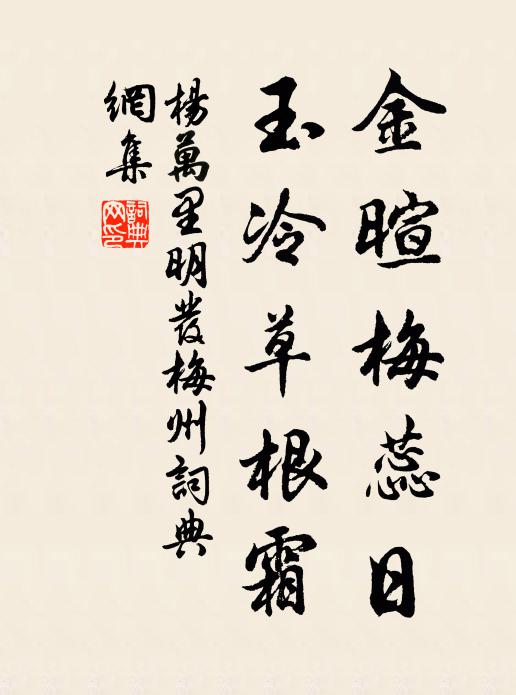 金暄梅蕊日
玉冷草根霜
楊萬里明發梅州詞典
網集
詞典
网印